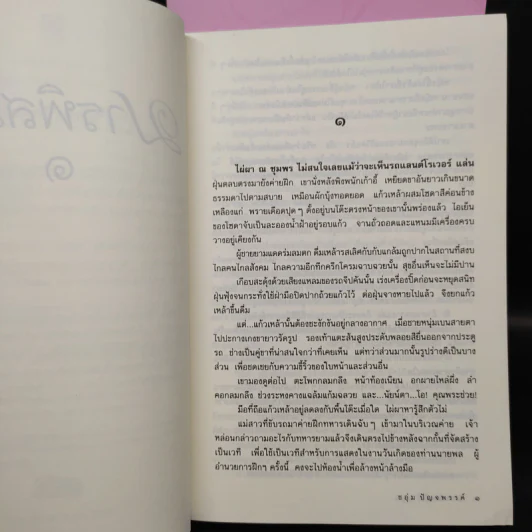 ๑
ไผ่ผา ณ ชุมพร ไม่สนใจเลยแม้ว่าจะเห็นรถแลนด์โรเวอร์ แล่น
ฝุ่นตลบตรงมายังค่ายฝึก เขานั่งหลังพิงพนักเก้าอี้ เหยียดขาอันยาวเกินขนาด
ธรรมดาไปตามสบาย เหมือนผักบุ้งทอดยอด แก้วเหล้าผสมโซดาสีค่อนข้าง
เหลืองแก่ พรายเดือดปุด ๆ ตั้งอยู่บนโต๊ะตรงหน้าของเขานั้นพร่องแล้ว ไอเย็น
ของโซดาจับเป็นละอองน้ำฝ้าอยู่รอบแก้ว จานถั่วทอดและแหนมมีเครื่องครบ
วางอยู่เคียงกัน
ผู้ชายยามแดดร่มลมตก ดื่มเหล้ารสเลิศกับกับแกล้มถูกปากในสถานที่สงบ
ไกลคนไกลสังคม ไกลความอึกทึกครึกโครมฉาบฉวยนั้น สุขอื่นเห็นจะไม่มีปาน
เกือบสะดุ้งด้วยเสียงแหลมของรถจี๊ปคันนั้น เร่งเครื่องปี๊ดก่อนจะหยุดสนิท
ฝุ่นฟุ้งจนกระทั่งใช้ฝ่ามือปิดปากถ้วยแก้วไว้ ต่อฝุ่นจางหายไปแล้ว จึงยกแก้ว
เหล้าขึ้นดื่ม
แต่...แก้วเหล้านั้นต้องชะงักงันอยู่กลางอากาศ เมื่อชายหนุ่มเบนสายตา
ไปปะกางเกงขายาวรัดรูป รองเท้าแตะส้นสูงประดับพลอยสียื่นออกจากประตู
รถ ช่างเป็นคู่ขาที่น่าสนใจกว่าที่เคยเห็น แต่ทว่าส่วนมากนั้นรูปร่างดีเป็นบาง
ส่วน เพื่อชดเชยกับความขี้ริ้วของใบหน้าและส่วนอื่น
เขามองดูต่อไป ตะโพกกลมกลึง หน้าท้องเนียน อกผายไหล่ผึ่ง ลำ
คอกลมกลึง ช่วงระหงคางแฉล้มแก้มฉลวย และ...นัยน์ตา...โอ! คุณพระช่วย!
มือที่ถือแก้วเหล้าอยู่ลดลงกับพื้นโต๊ะเมื่อใด ไผ่ผาหารู้สึกตัวไม่
แม่สาวที่ขับรถมาค่ายฝึกทหารเดินฉับ ๆ เข้ามาในบริเวณค่าย เจ้า
หล่อนกล่าวถามอะไรกับทหารยามแล้วจึงเดินตรงไปข้างหลังฉากกั้นที่จัดสร้าง
เป็นเวที เพื่อใช้เป็นเวทีสำหรับการแสดงในงานวันเกิดของท่านนายพล ผู้
อำนวยการฝึกฯ ครั้งนี้ คงจะไปห้องน้ำเพื่อล้างหน้าล้างมือ
อยุ่ม ปัญจพรรค์ ๑